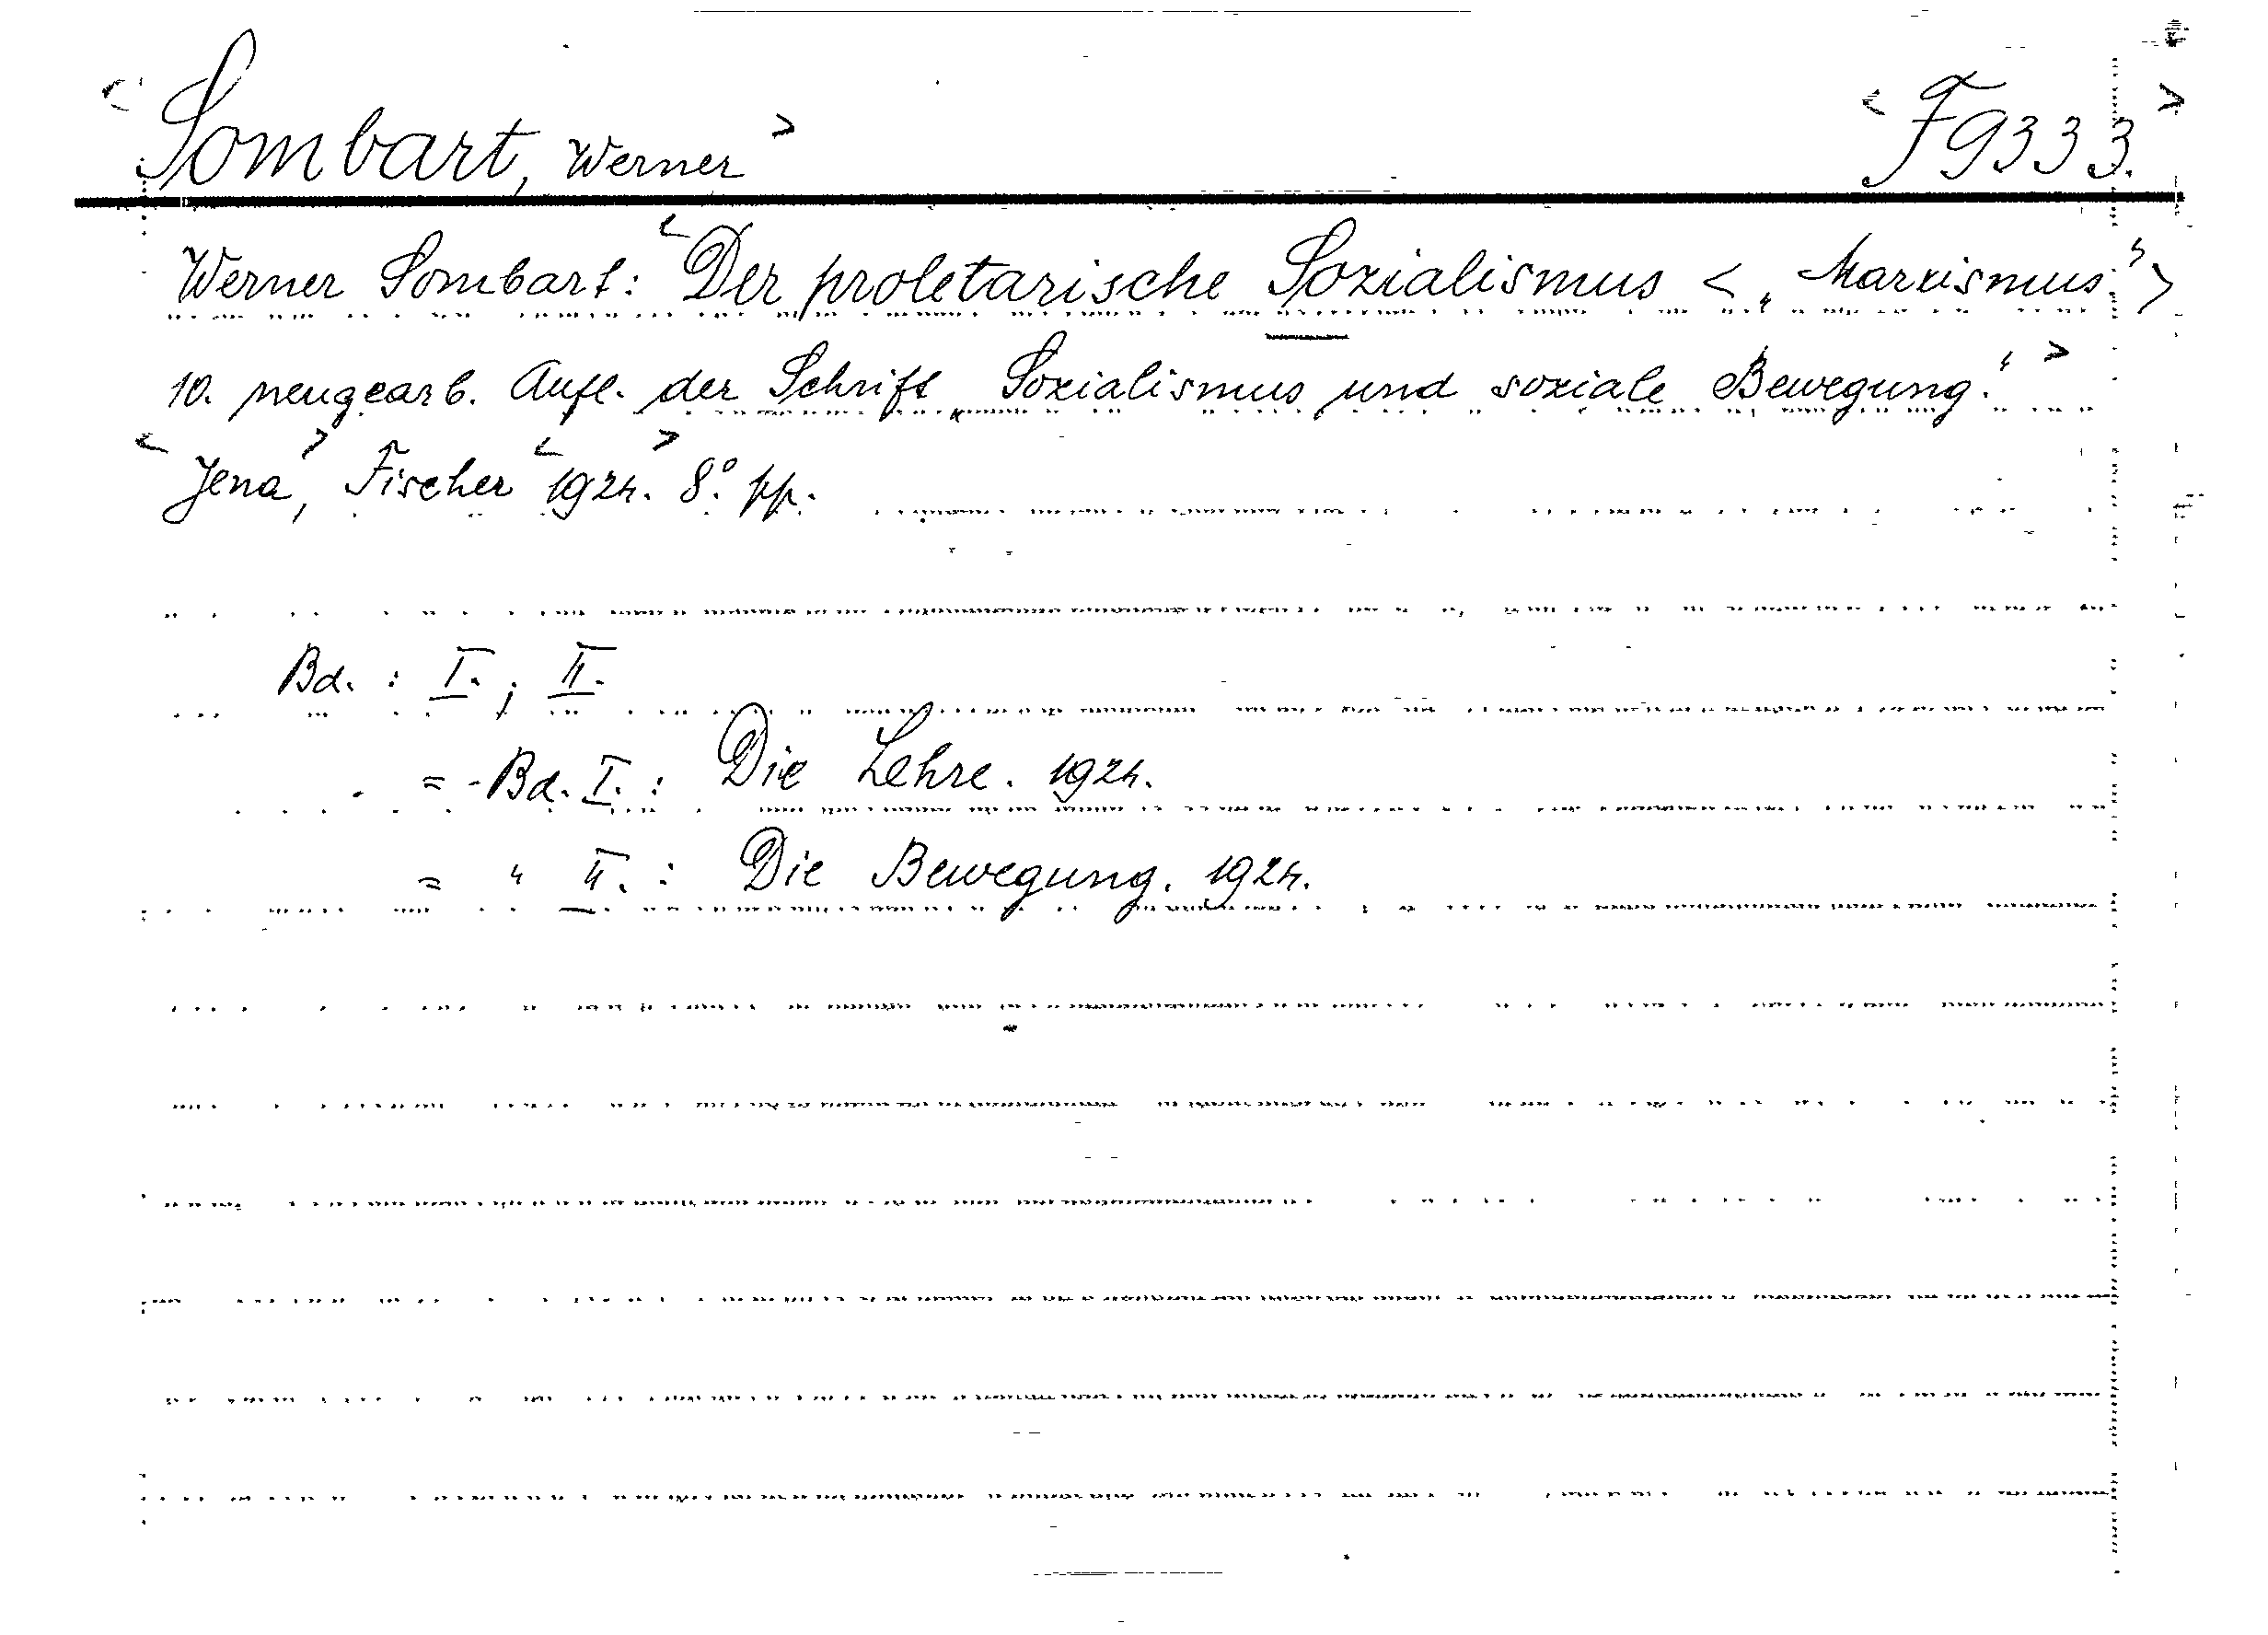 < Sombart, Werner > < F9333. >
Werner Sombart: < Der proletarische Sozialismus < „Marxismus.“ >
10. neugearb. Aufl. der Schrift „Sozialismus und soziale Bewegung.“ >
< Jena >, Fischer < 1924. > 8°. pp.
Bd. : I. ; II.
= -Bd. I. : Die Lehre. 1924.
= " II. : Die Bewegung. 1924.